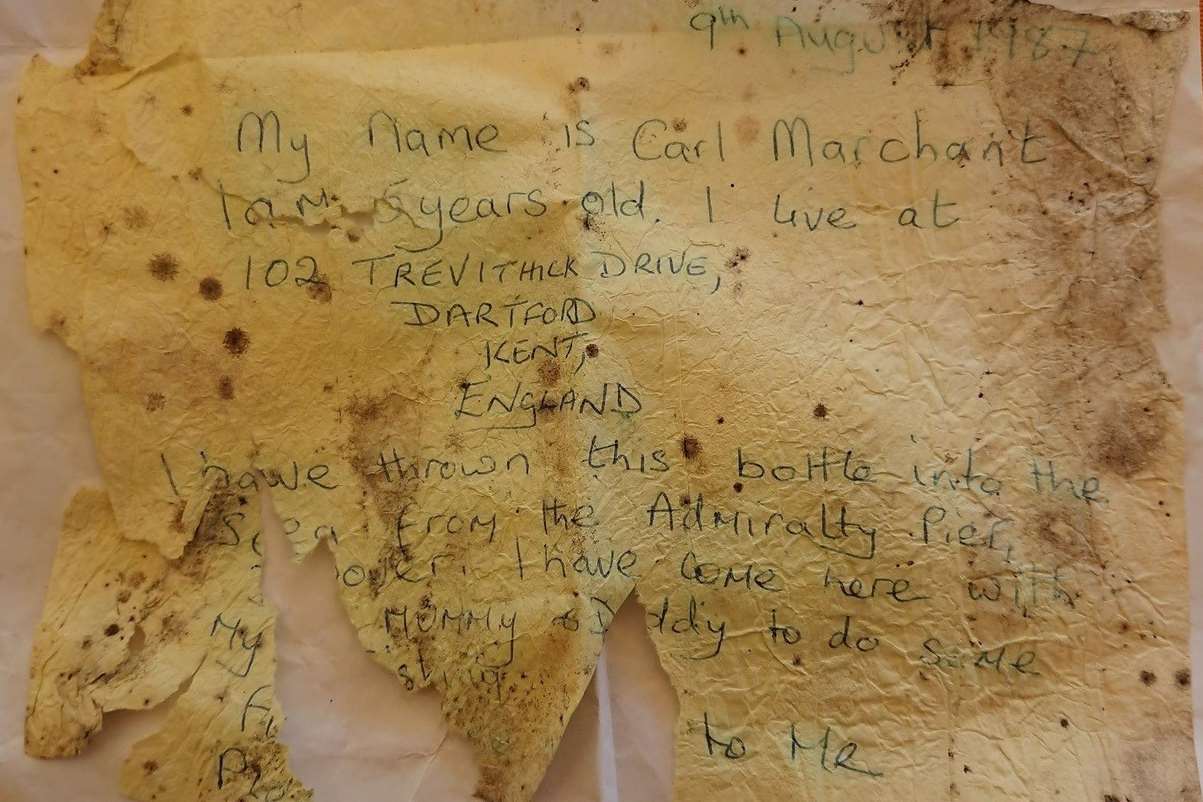 9th August 1987
My Name is Carl Marchant
I am 5 years old. I live at
102 TREVITHICK DRIVE,
DARTFORD
KENT,
ENGLAND
I have thrown this bottle into the
Sea from the Admiralty Pier,
over. I have come here with
My MUMMY & D ddy to do some
shing
to Me